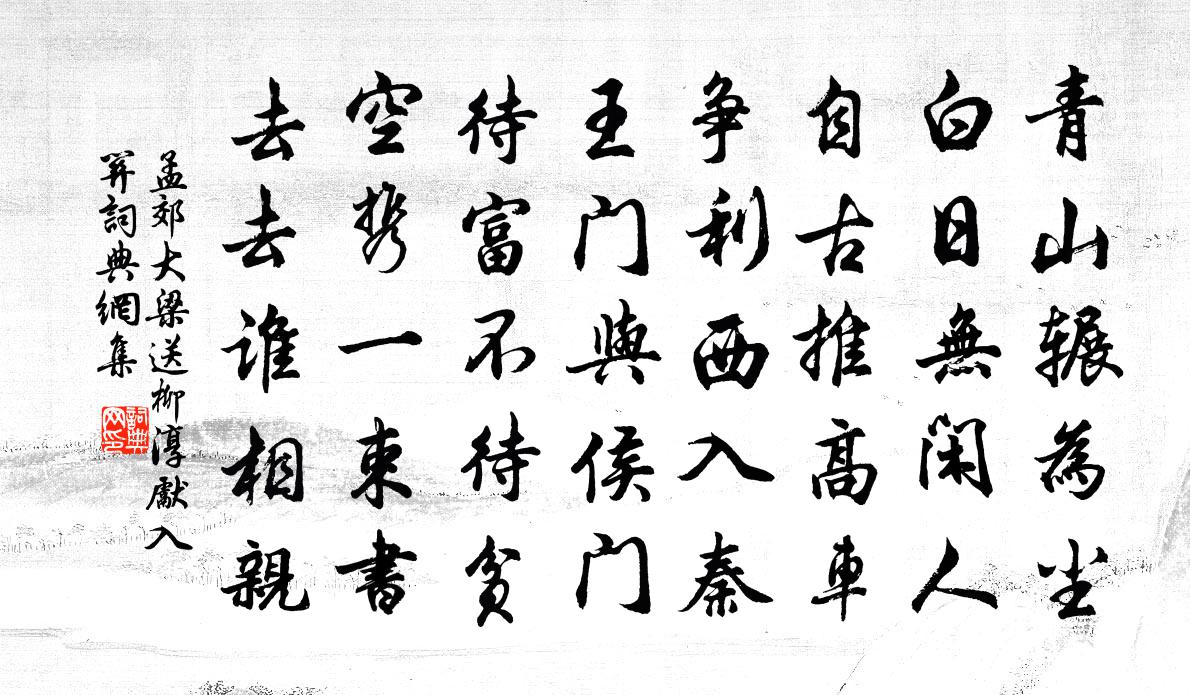 青山辗為尘
白日無閑人
自古推髙車
争利西入秦
王門與侯門
待富不待貧
空携一束書
去去谁相親
孟郊大梁送柳淳獻入
詞典網集
詞典
网印